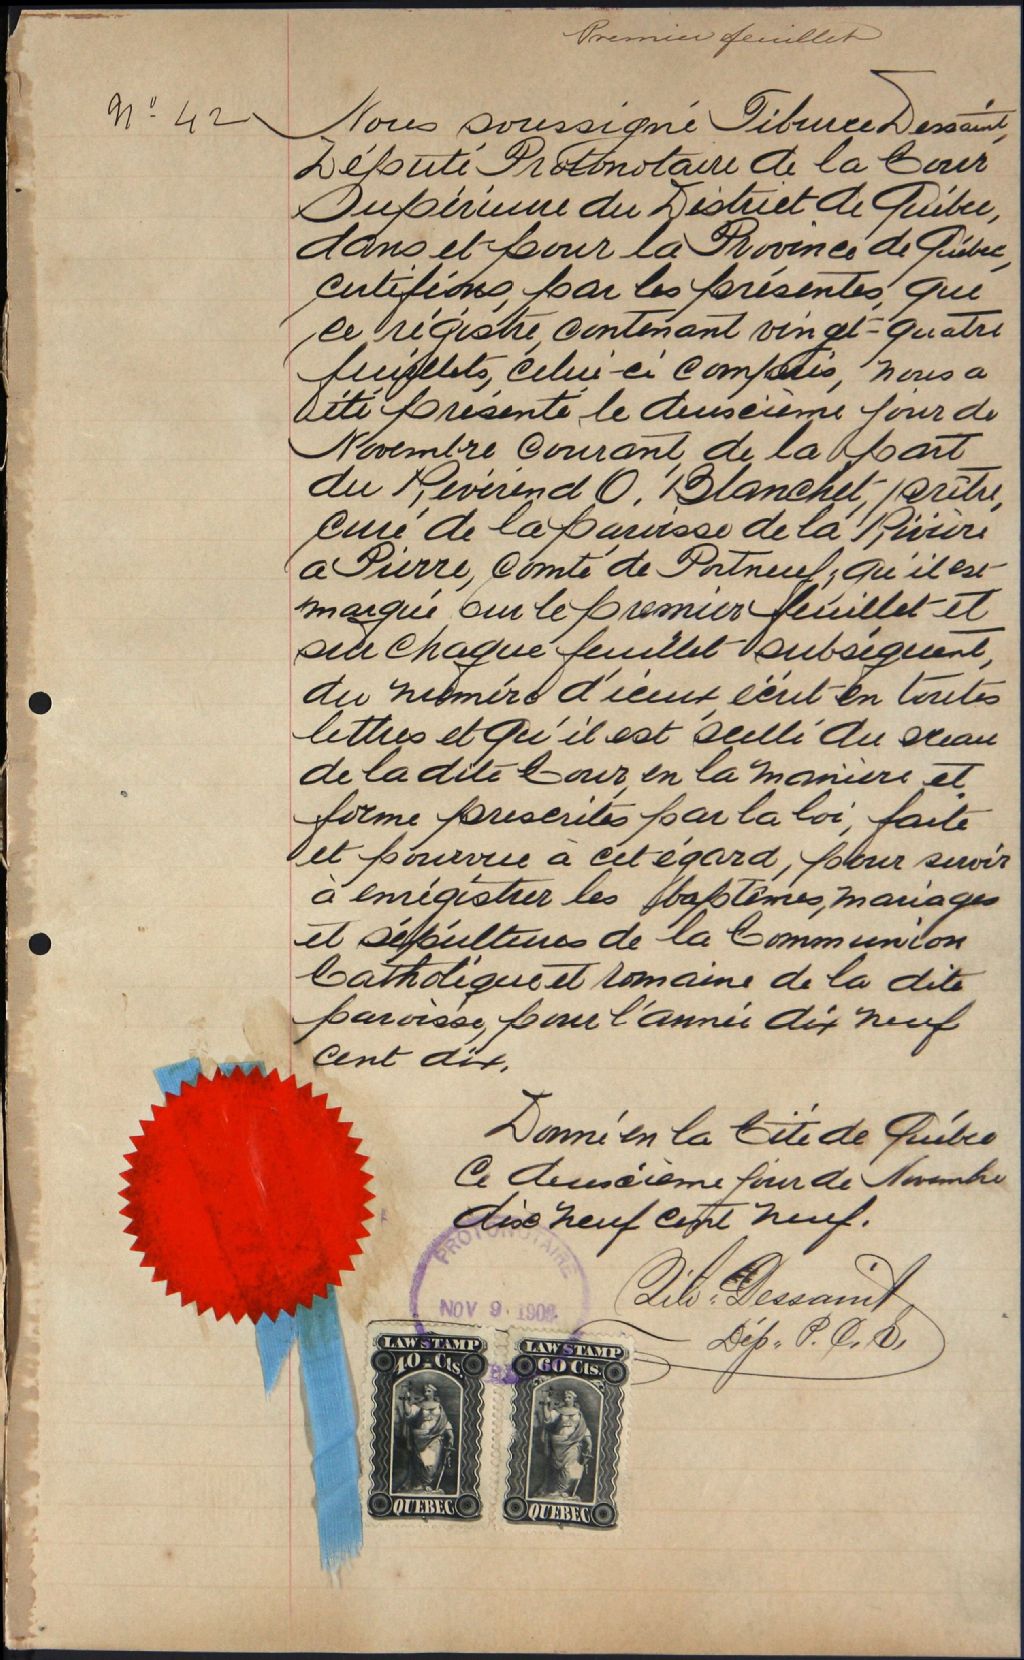 Premier feuillet
N° 42
Nous soussigné Tiburce Dessaint,
Député Protonotaire de la Cour
Supérieure du District de Québec,
dans et pour la Province de Québec,
certifions, par les présentes, que
ce régistre, contenant vingt-quatre
feuillets, celui-ci compris, nous a
été présenté le deuxième jour de
Novembre courant, de la part
du Révérend O. Blanchet, prêtre,
curé de la paroisse de la Rivière
a Pierre, Comté de Portneuf; qu'il est
marqué sur le premier feuillet et
sur chaque feuillet subséquent,
du numéro d'iceux, écrit en toutes
lettres et qu'il est scellé du sceau
de la dite Cour, en la manière et
forme prescrites par la loi, faite
et pourvue à cet égard, pour servir
à enrégistrer les baptêmes, mariages
et sépultures de la Communion
Catholique et romaine de la dite
paroisse, pour l'année dix neuf
cent dix.
Donné en la Cité de Québec
ce deuxième jour de Novembre
dix neuf cent neuf.
Tib. Dessaint
Dép. P. C. S.
PROTONOTAIRE
NOV 9 1909
LAW STAMP
40 Cts.
QUEBEC
LAW STAMP
60 Cts.
QUEBEC